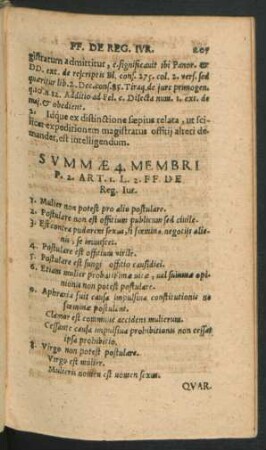 FF. DE REG. IVR. 205
gistratum admittitur, c. significauit ibi Panor. &
DD. ext. de rescriptis lil. cons. 275. col. 2. vers. sed
quæritur lib. 2. Dec. cons. 85. Tiraq. de jure primogen.
q. 10. n. 12. Additio ad Fel. c. Dilecta num. 1. ext. de
maj. & obedient.
2. Idque ex distinctione sæpius relata, ut sci-
licet expeditionem magistratus officij alteri de-
mandet, est intelligendum.
SVMMÆ 4. MEMBRI
P. 2. ART. 1. L. 2. FF. DE
Reg. Iur.
1. Mulier non potest pro alio postulare.
2. Postulare non est officium publicum sed civile.
3. Est contra pudorem sexus, si fœmina negotijs alie-
nis se immisceat.
4. Postulare est officium virile.
5. Postulare est fungi officio causidici.
6. Etiam mulier probatissimæ vitæ, vel summæ opi-
nionis non potest postulare.
7. Aphrania fuit causa impulsiva constitutionis ne
fœminæ postulent.
Clamor est commune accidens mulierum.
Cessante causa impulsiva prohibitionis non cessat
ipsa prohibitio.
8. Virgo non potest postulare.
Virgo est mulier.
Mulieris nomen est nomen sexus.
QVAR.